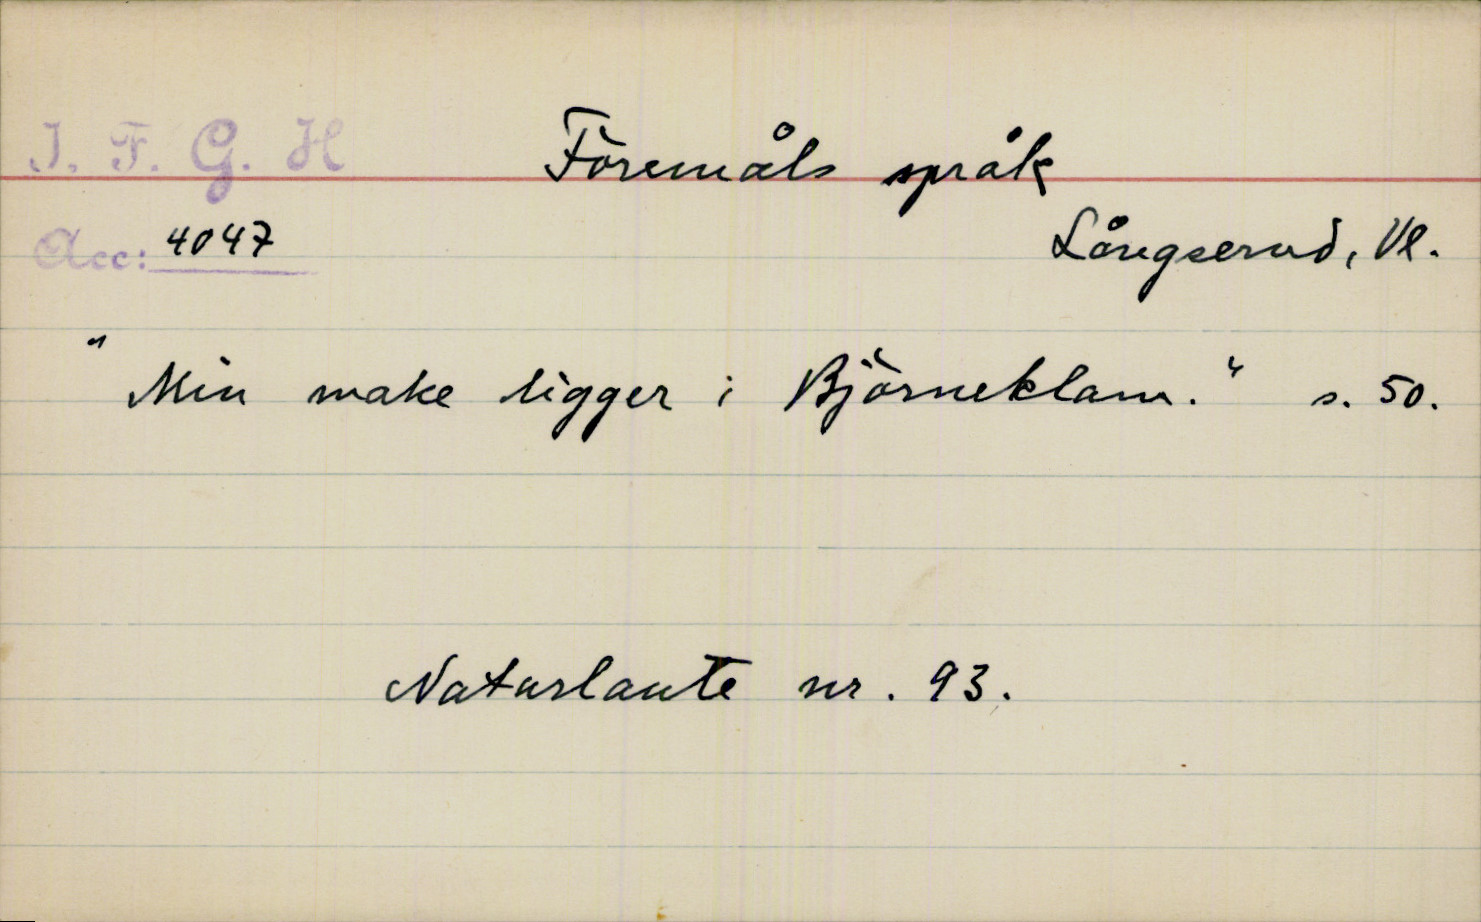 I. F. G. H
Föremåls språk
Acc: 4047
Långserud, Vl.
"Min make ligger i Björneklam." s. 50.
Naturlaute nr. 93.